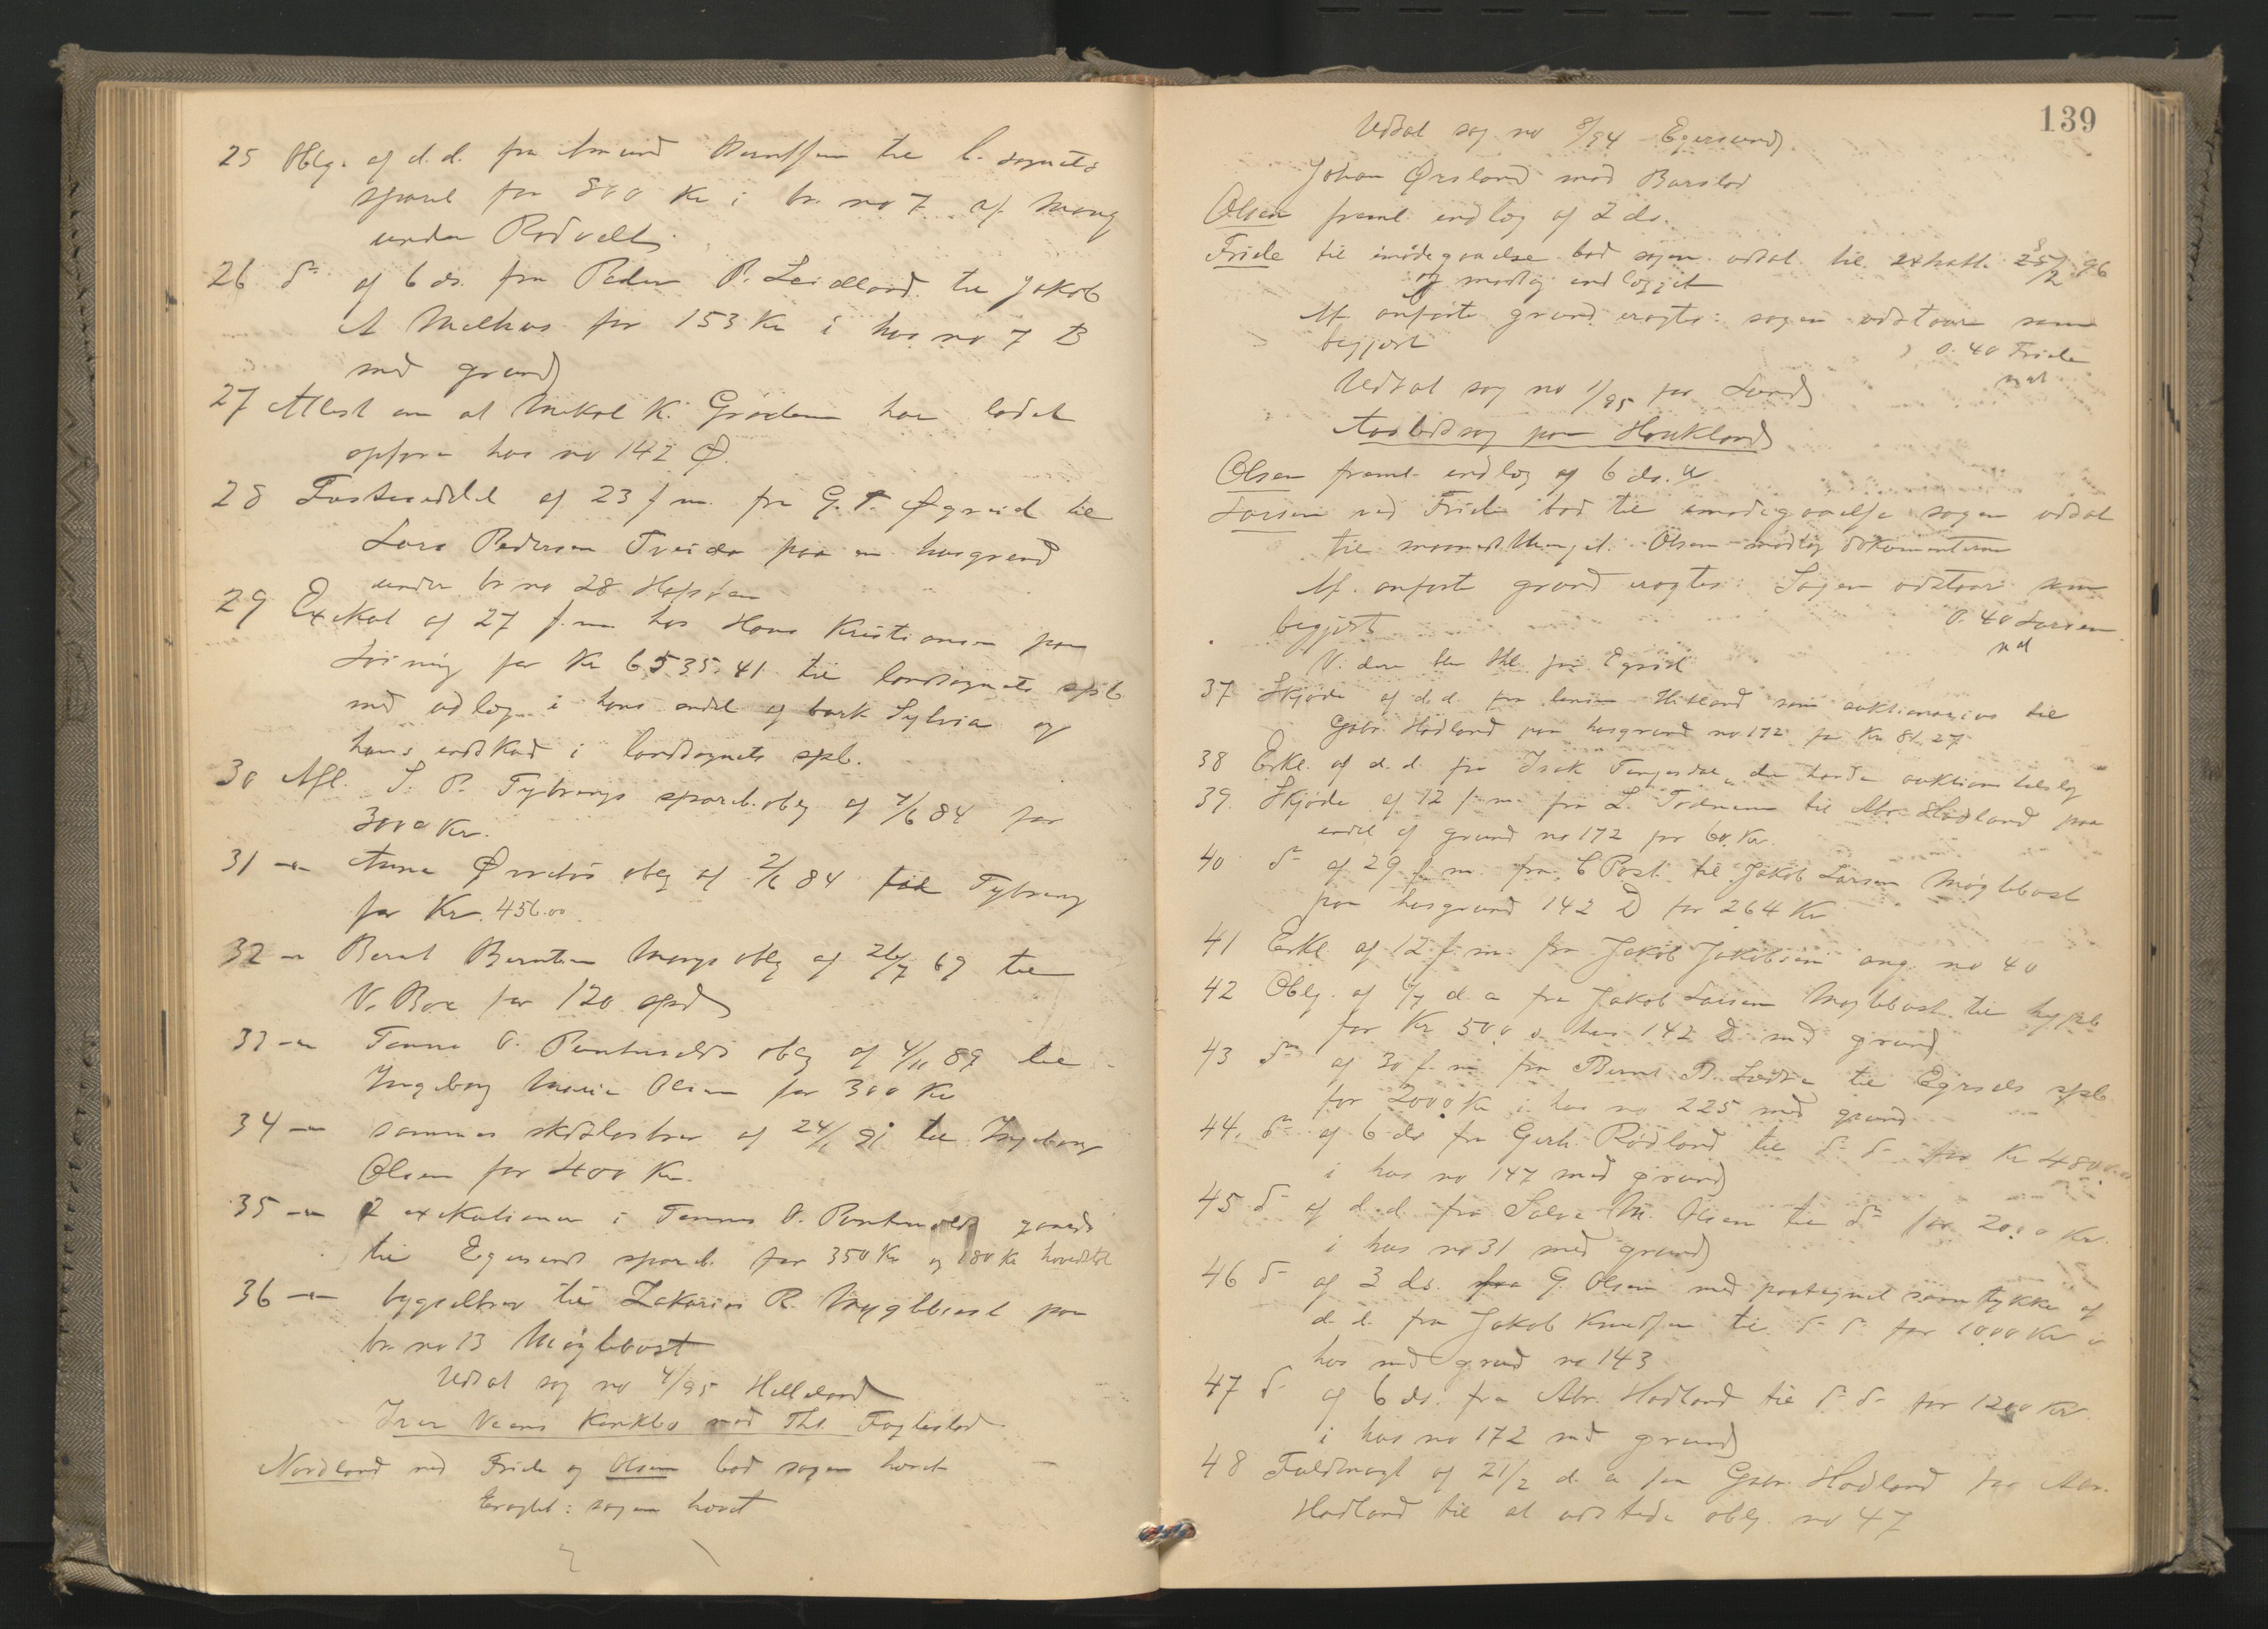 25 Oblg. af d.d. fra Amund Berntsen til l. sognets
spareb for 800 Kr i br. no 7 af Mong
under Rodvelt
26 do af 6 ds. fra Peder P. Leidland til Jakob
A Melhus for 153 Kr i hus no 7 B
med grund
27 Attest om at Mikal K. Grødem har ladet
opføre hus no 142 Ø.
28 Festeseddel af 23 f.m. fra G. T. Øgreid til
Lars Pedersen Tveiden paa en husgrund
under br no 28 Hafsøen
29 Exekut af 27 f.m. hos Hans Kristiansen paa
for Kr 6535.41 til landsognets spb
med udlæg i hans andel af bark Sylvia og
hans indskud i landsognets spb.
30 Afl. S. P. Tybrings spareb.oblg af 7/6 84 for
3000 Kr.
31 -"- Anna oblg af 2/6 84 til Tybring
for Kr. 456.00
32 -"- Bernt Berntsen Mongs oblg af 26/7 69 til
V. Boe for 120 spd
33 -"- Tønnes O. oblg af 4/11 89 til
Ingeborg Marie Olsen for 300 Kr
34 -"- sammes skadesløsbrev af 24/1 91 til Ingeborg
Olsen for 400 Kr.
35 -"- 2 exekutioner i Tønnes O. gaard
til Egersunds spareb. for 350 Kr og 180 Kr hovedstol
36 -"- bygselbrev til Zakarias R. Møglebust paa
br. no 13 Møglebust
Udsat sag no 4/95 Helleland
Iver Veens Konkbo mod Ths. Fuglestad
Nordland ved Feide og Olsen bad sagen hævet
Eragtet: sagen hævet
139
Udsat sag no 8/94 Egersund
Johan Ørsland mod Barstad
Olsen freml. indlæg af 2 ds.
Feide til imødegaaelse bad sagen udsat til extratt. 25/2 96
og modtog indlægget
Af anførte grund eragtes: sagen udstaar som
begjært
0.40 Feide
Udsat sag no 1/95 for Lund
Aastedssag paa Haukland
Olsen freml. indlæg af 6 ds.
Larsen ved Feide bad til imødegaaelse sagen udsat
til maanedsthinget. Olsen modtog dokumenterne
Af anført grund eragtes: Sagen udstaar som
begjært
0.40 Larsen
V. dere blev thl. for Egersd
37 Skjøde af d.d. fra Hetland som auktionarius til
Gabr. Hadland paa husgrund no 172 for Kr 81.27
38 Erkl. af d.d. fra Isak Tengesdal, der havde auktionstilslag
39 Skjøde af 12 f.m. fra L. til Abr. Hadland paa
endel af grund no 172 for 60 Kr.
40 do af 29 f.m. fra C Post til Jakob Larsen Møglebust
paa husgrund 142 D for 264 Kr
41 Erkl. af 12 f.m. fra Jakob Jakobsen ang. no 40
42 Oblg. af 6/7 d.a fra Jakob Larsen Møglebust til hypb
for Kr 500 i hus 142 D med grund
43 do af 30 f.m fra Bernt B. til Egrsds spb
for 2000 Kr i hus no 225 med grund
44. do af 6 ds fra Gerh. Rødland til do do for Kr 4800.00
i hus no 147 med grund
45 do af d.d. fra Salve M. Olsen til do for 2000 Kr.
i hus no 31 med grund
46 do af 3 ds. fra G. Olsen med paategnet samtykke af
d.d. fra Jakob Knudsen til do do for 1000 Kr i
hus med grund no 143
47 do af 6 ds. fra Abr. Hadland til do do for 1200 Kr.
i hus no 172 med grund
48 Fuldmagt af 21/2 d.a fra Gabr. Hadland for Abr.
Hadland til at udstede oblg. no 47